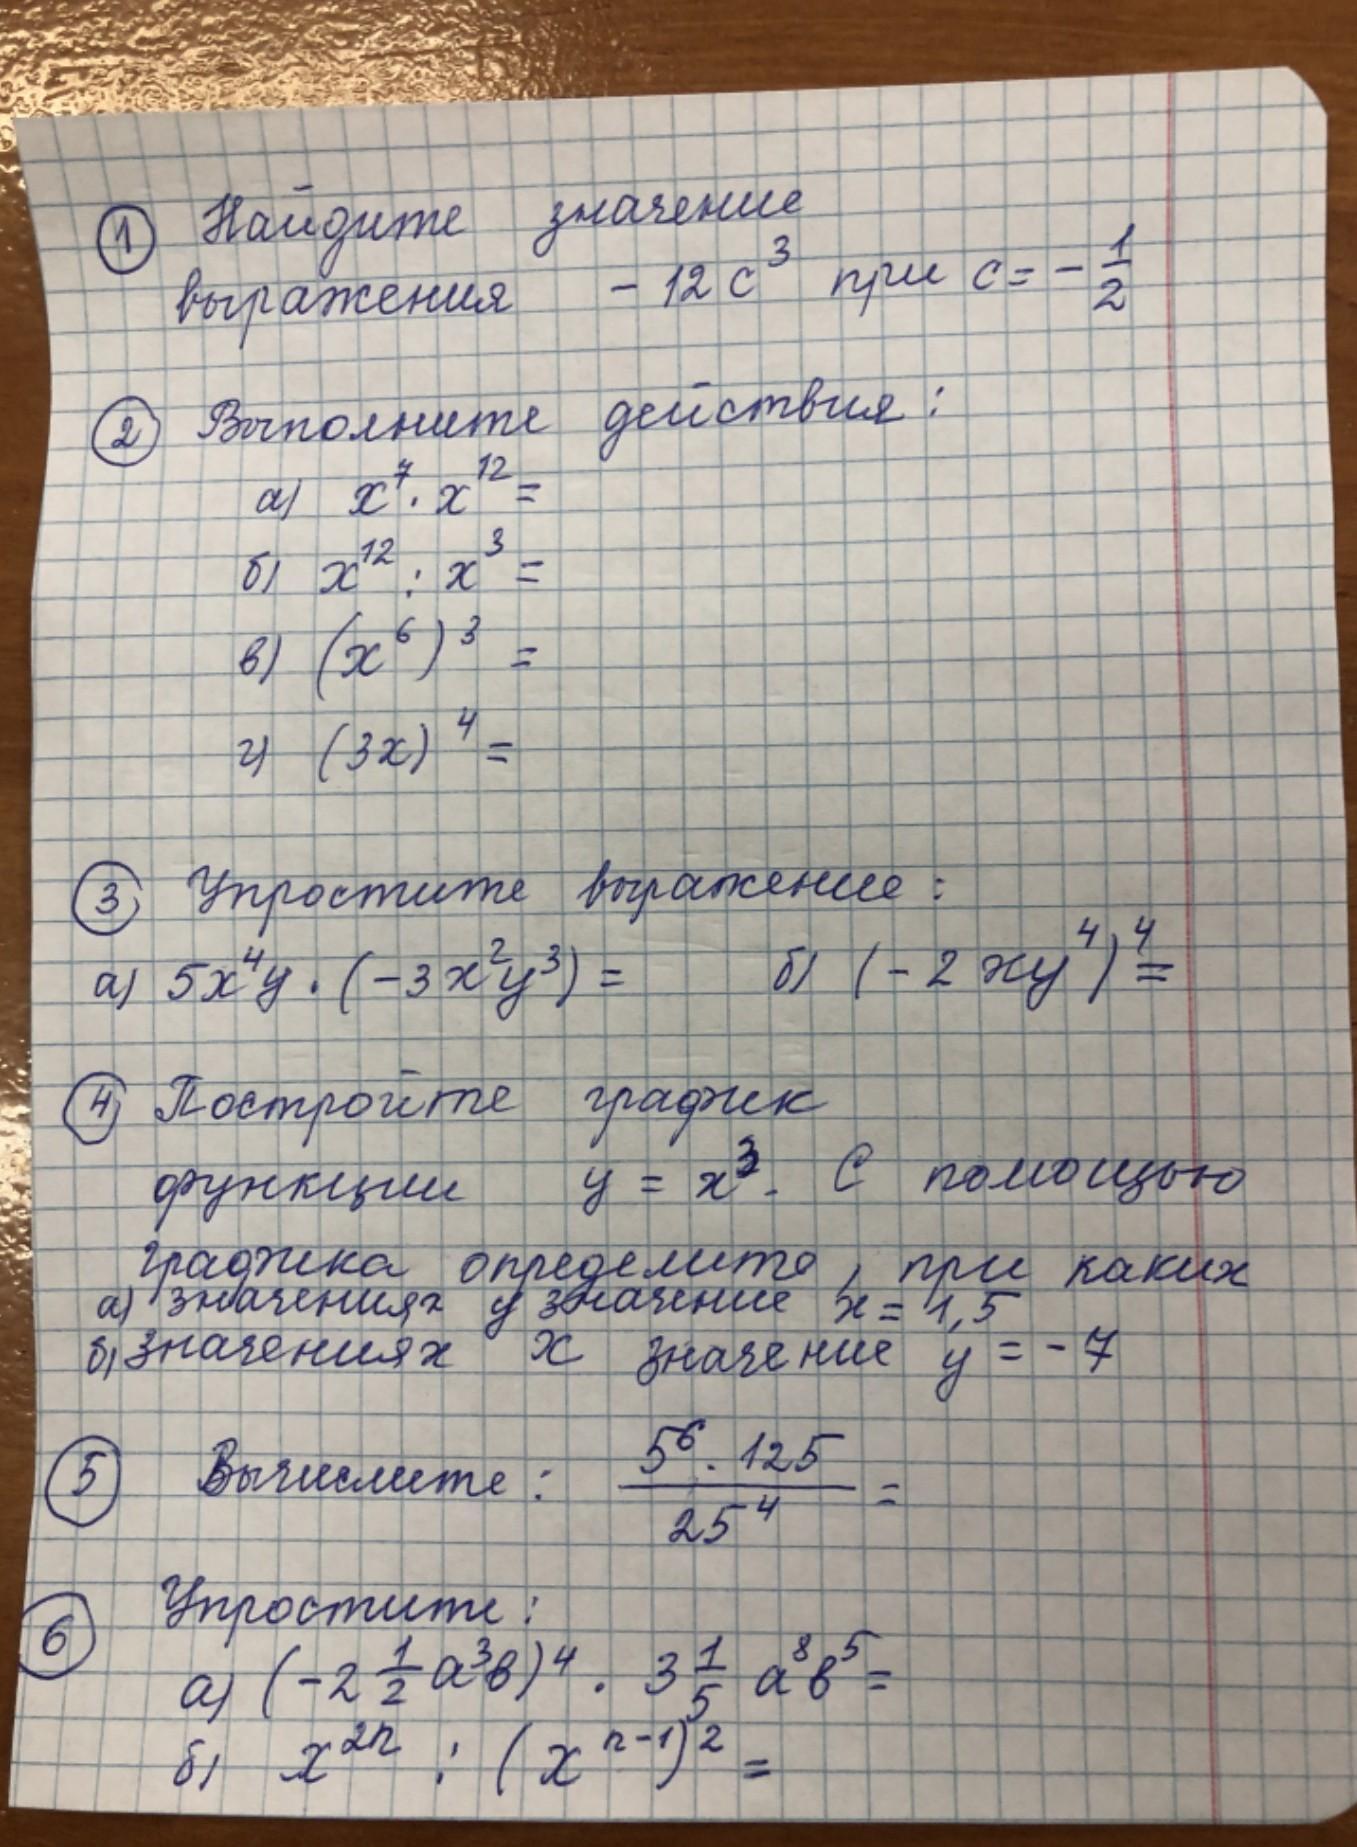 ① Найдите значение
выражения - 12 c³ при c = - 1/2
② Выполните действия:
а) x⁷ · x¹² =
б) x¹² : x³ =
в) (x⁶)³ =
г) (3x)⁴ =
③ Упростите выражение:
а) 5x⁴y · (-3x²y³) = б) (-2xy⁴)⁴ =
④ Постройте график
функции y = x³. С помощью
графика определите, при каких
а) значениях y значение x = 1,5
б) значениях x значение y = -7
⑤ Вычислите: (5⁶ · 125)/25⁴ =
⑥ Упростите:
а) (-2 1/2 a³b)⁴ · 3 1/5 a⁸b⁵ =
б) x²ⁿ : (xⁿ⁻¹)² =